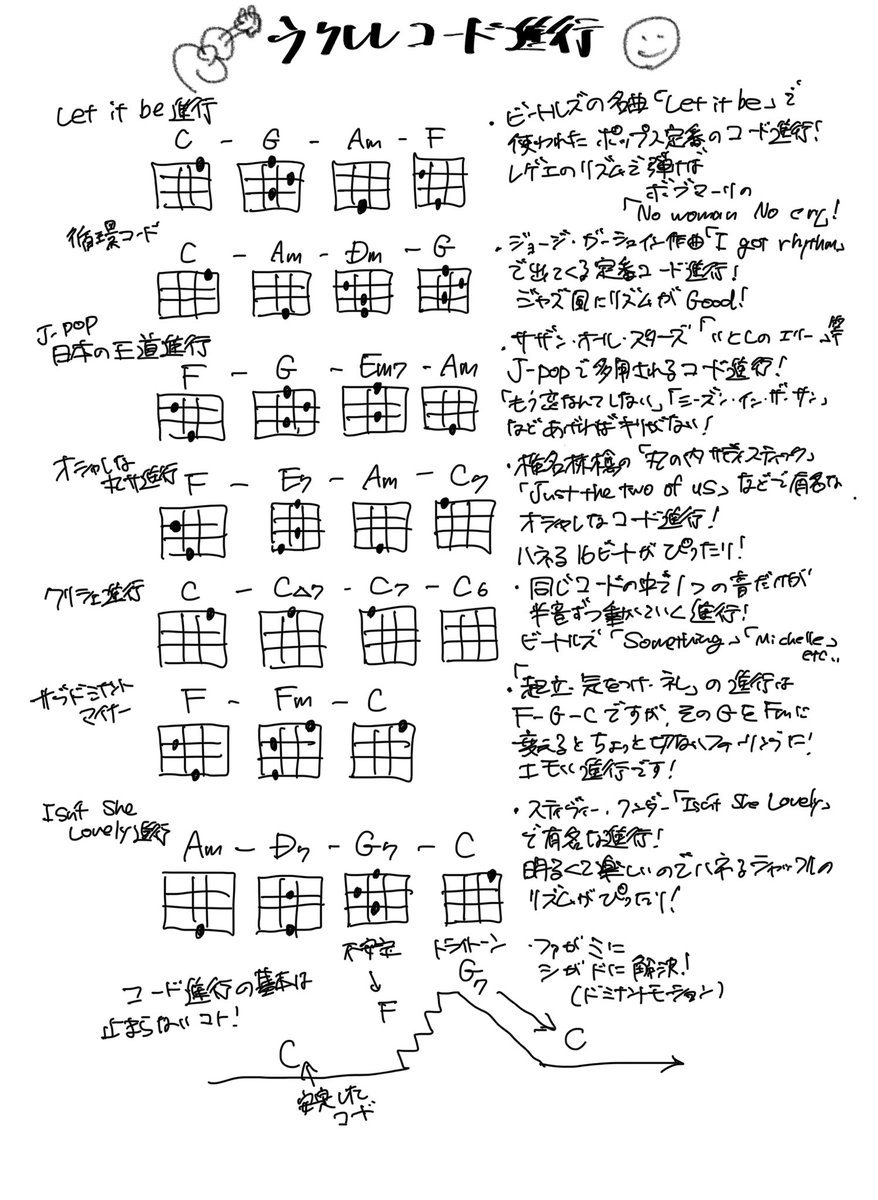 ウクレレコード進行
Let it be 進行
C - G - Am - F
・ビートルズの名曲「Let it be」で
使われたポップス定番のコード進行!
レゲエのリズムで弾けば
ボブマーリの
「No woman No cry」!
循環コード
C - Am - Dm - G
・ジョージ・ガーシュイン作曲「I got rhythm」
で出てくる定番コード進行!
ジャズ風にリズムがGood!
J-pop
日本の王道進行
F - G - Em7 - Am
・サザン・オール・スターズ「いとしのエリー」等
J-popで多用されるコード進行!
「もう恋なんてしない」「シーズン・イン・ザ・サン」
などあげればキリがない!
オシャレな
丸サ進行
F - E7 - Am - C7
・椎名林檎の「丸の内サディスティック」
「Just the two of us」などで有名な
オシャレなコード進行!
ハネる16ビートがぴったり!
クリシェ進行
C - C△7 - C7 - C6
・同じコードの中で1つの音だけが
半音ずつ動いていく進行!
ビートルズ「Something」「Michelle」
etc..
サブドミナント
マイナー
F - Fm - C
・「起立・気をつけ・礼」の進行は
F-G-Cですが、そのGをFmに
変えるとちょっと切ないフィーリングに!
エモい進行です!
Isn't She
Lovely進行
Am - D7 - G7 - C
・スティヴィー・ワンダー「Isn't She Lovely」
で有名な進行!
明るくて楽しいのでハネるシャッフルの
リズムがぴったり!
不安定
トライトーン
・ファがミに
シがドに解決!
(ドミナントモーション)
コード進行の基本は
止まらないコト!
G7
F
C
C
安定した
コード